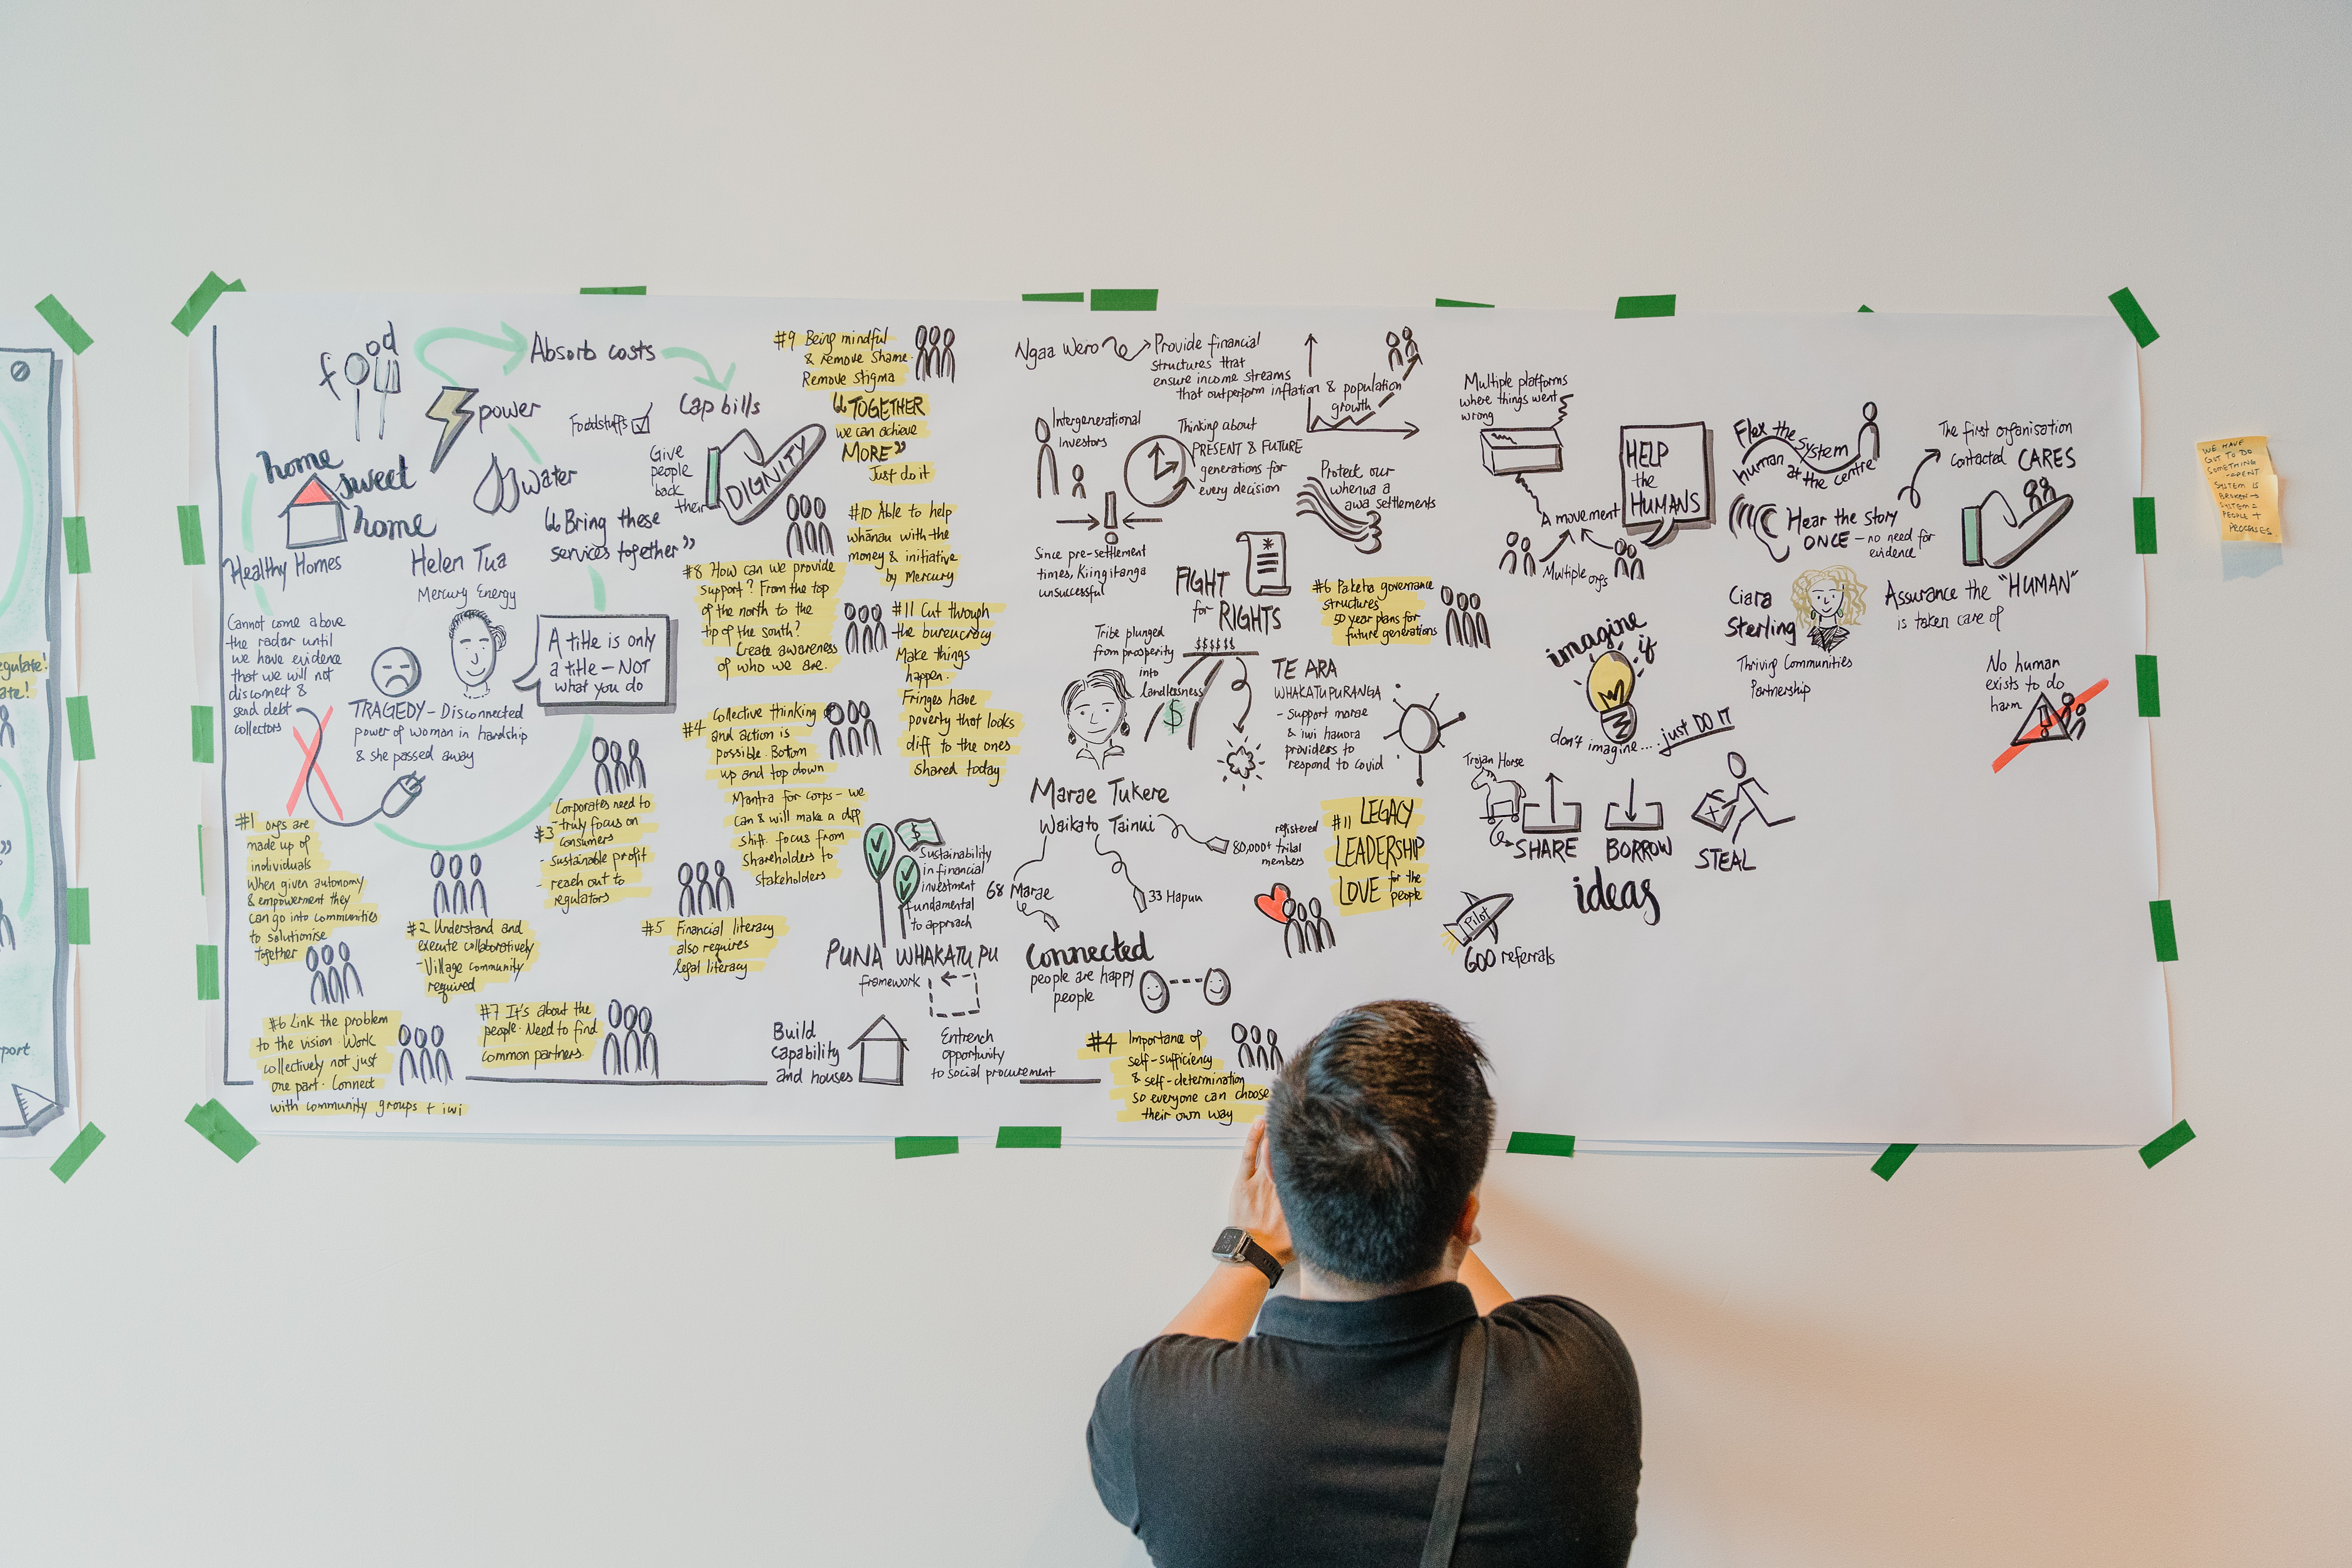 egulate!
ate!
port
food
Absorb costs
power
Foodstuffs
Cap bills
home
sweet
home
water
Give
people
back
their
DIGNITY
Healthy Homes
Helen Tua
Mercury Energy
"Bring these
services together"
Cannot come above
the radar until
we have evidence
that we will not
disconnect &
send debt
collectors
A title is only
a title - NOT
what you do
TRAGEDY - Disconnected
power of woman in hardship
& she passed away
#1 orgs are
made up of
individuals
When given autonomy
& empowerment they
can go into communities
to solutionise
together
#2 Understand and
execute collaboratively
- Village community
required
Corporates need to
#3 - truly focus on
consumers
- Sustainable profit
- reach out to
regulators
#4 Collective thinking
and action is
possible. Bottom
up and top down
Mantra for corps - we
can & will make a diff
shift focus from
shareholders to
stakeholders
#5 Financial literacy
also requires
legal literacy
#6 Link the problem
to the vision. Work
collectively not just
one part. Connect
with community groups + iwi
#7 It's about the
people. Need to find
common partners.
#8 How can we provide
support? From the top
of the north to the
tip of the south?
Create awareness
of who we are.
#9 Being mindful
& remove shame.
Remove stigma
"TOGETHER
we can achieve
MORE"
Just do it
#10 Able to help
whānau with the
money & initiative
by Mercury
#11 Cut through
the bureucracy
Make things
happen.
Fringes have
poverty that looks
diff to the ones
shared today
Ngaa Wero
Provide financial
structures that
ensure income streams
that outperform inflation & population
growth
Intergenerational
Investors
Thinking about
PRESENT & FUTURE
generations for
every decision
Protect our
whenua &
awa settlements
Since pre-settlement
times, Kiingitanga
unsuccessful
FIGHT
for RIGHTS
#6 Pakeha governance
structures
50 year plans for
future generations
Tribe plunged
from prosperity
into
landlessness
$$$$$$
$
TE ARA
WHAKATUPURANGA
- Support marae
& iwi hauora
providers to
respond to covid
Marae Tukere
Waikato Tainui
68 Marae
33 Hapuu
registered
80,000+ tribal
members
#11 LEGACY
LEADERSHIP
LOVE for the
people
$
Sustainability
in financial
investment
fundamental
to approach
PUNA WHAKATUPU
framework
Build
capability
and houses
Entrench
opportunity
to social procurement
Connected
people are happy
people
#4 Importance of
self-sufficiency
& self-determination
so everyone can choose
their own way
Multiple platforms
where things went
wrong
A movement
Multiple orgs
HELP
the
HUMANS
Flex the System
human at the centre
Hear the Story
ONCE - no need for
evidence
The first organisation
contacted CARES
Ciara
Sterling
Thriving Communities
Partnership
Assurance the "HUMAN"
is taken care of
No human
exists to do
harm
imagine
if
don't imagine.... just DO IT
Trojan Horse
SHARE
BORROW
STEAL
ideas
Pilot
600 referrals
WE HAVE
GOT TO DO
SOMETHING
SYSTEM IS
BROKEN
SYSTEM =
PEOPLE +
PROCESSES